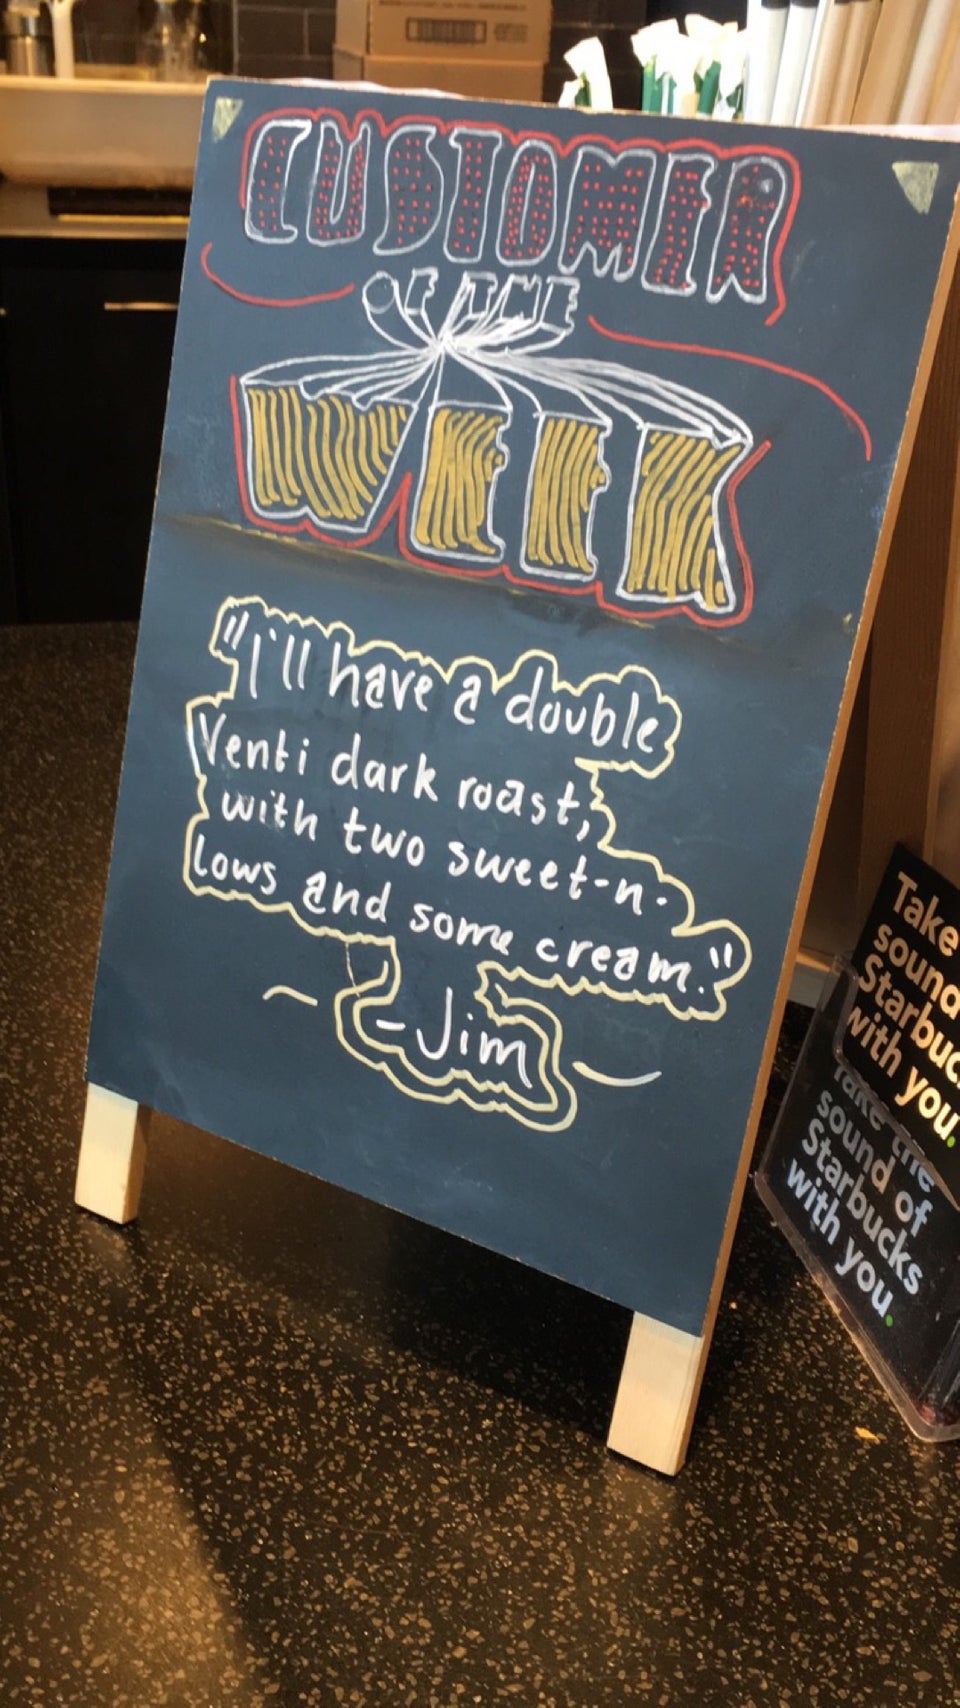 CUSTOMER
OF THE
WEEK
"I'll have a double
Venti dark roast,
with two sweet-n-
lows and some cream."
- Jim
Take
sound
Starbuc
with you.
Take the
sound of
Starbucks
with you.